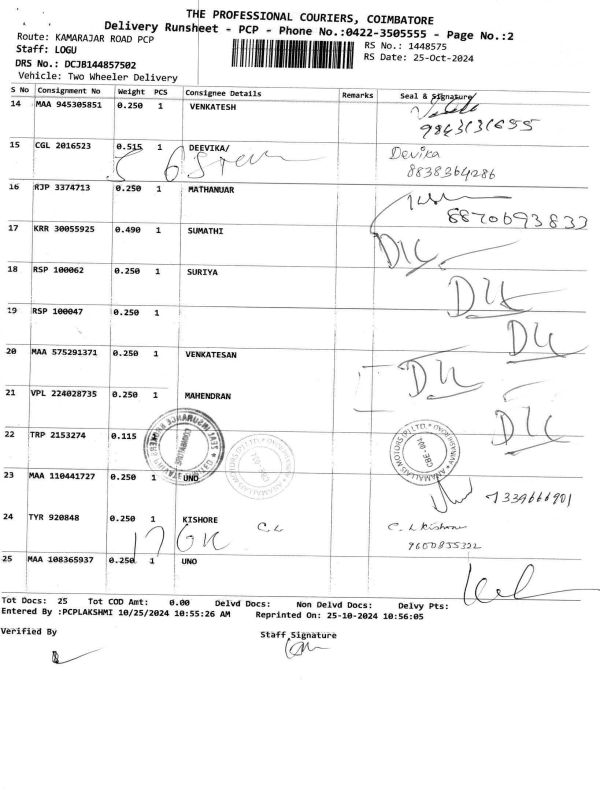 THE PROFESSIONAL COURIERS, COIMBATORE
Delivery Runsheet - PCP - Phone No.:0422-3505555 - Page No.:2
Route: KAMARAJAR ROAD PCP
RS No.: 1448575
Staff: LOGU
RS Date: 25-Oct-2024
DRS No.: DCJB144857502
Vehicle: Two Wheeler Delivery
S No Consignment No Weight PCS Consignee Details Remarks Seal & Signature
14 MAA 945305851 0.250 1 VENKATESH
9843131655
15 CGL 2016523 0.515 1 DEEVIKA/ Devika
8838364286
16 RJP 3374713 0.250 1 MATHANUAR
8870693833
17 KRR 30055925 0.490 1 SUMATHI
18 RSP 100062 0.250 1 SURIYA
19 RSP 100047 0.250 1
20 MAA 575291371 0.250 1 VENKATESAN
21 VPL 224028735 0.250 1 MAHENDRAN
22 TRP 2153274 0.115
ANAMALLAIS MOTORS (P) LTD.
CBE-004
23 MAA 110441727 0.250 1 UNO
7339666901
24 TYR 920848 0.250 1 KISHORE C. L C. L Kishore
9600855322
25 MAA 108365937 0.250 1 UNO
Tot Docs: 25 Tot COD Amt: 0.00 Delvd Docs: Non Delvd Docs: Delvy Pts:
Entered By :PCPLAKSHMI 10/25/2024 10:55:26 AM Reprinted On: 25-10-2024 10:56:05
Verified By Staff Signature